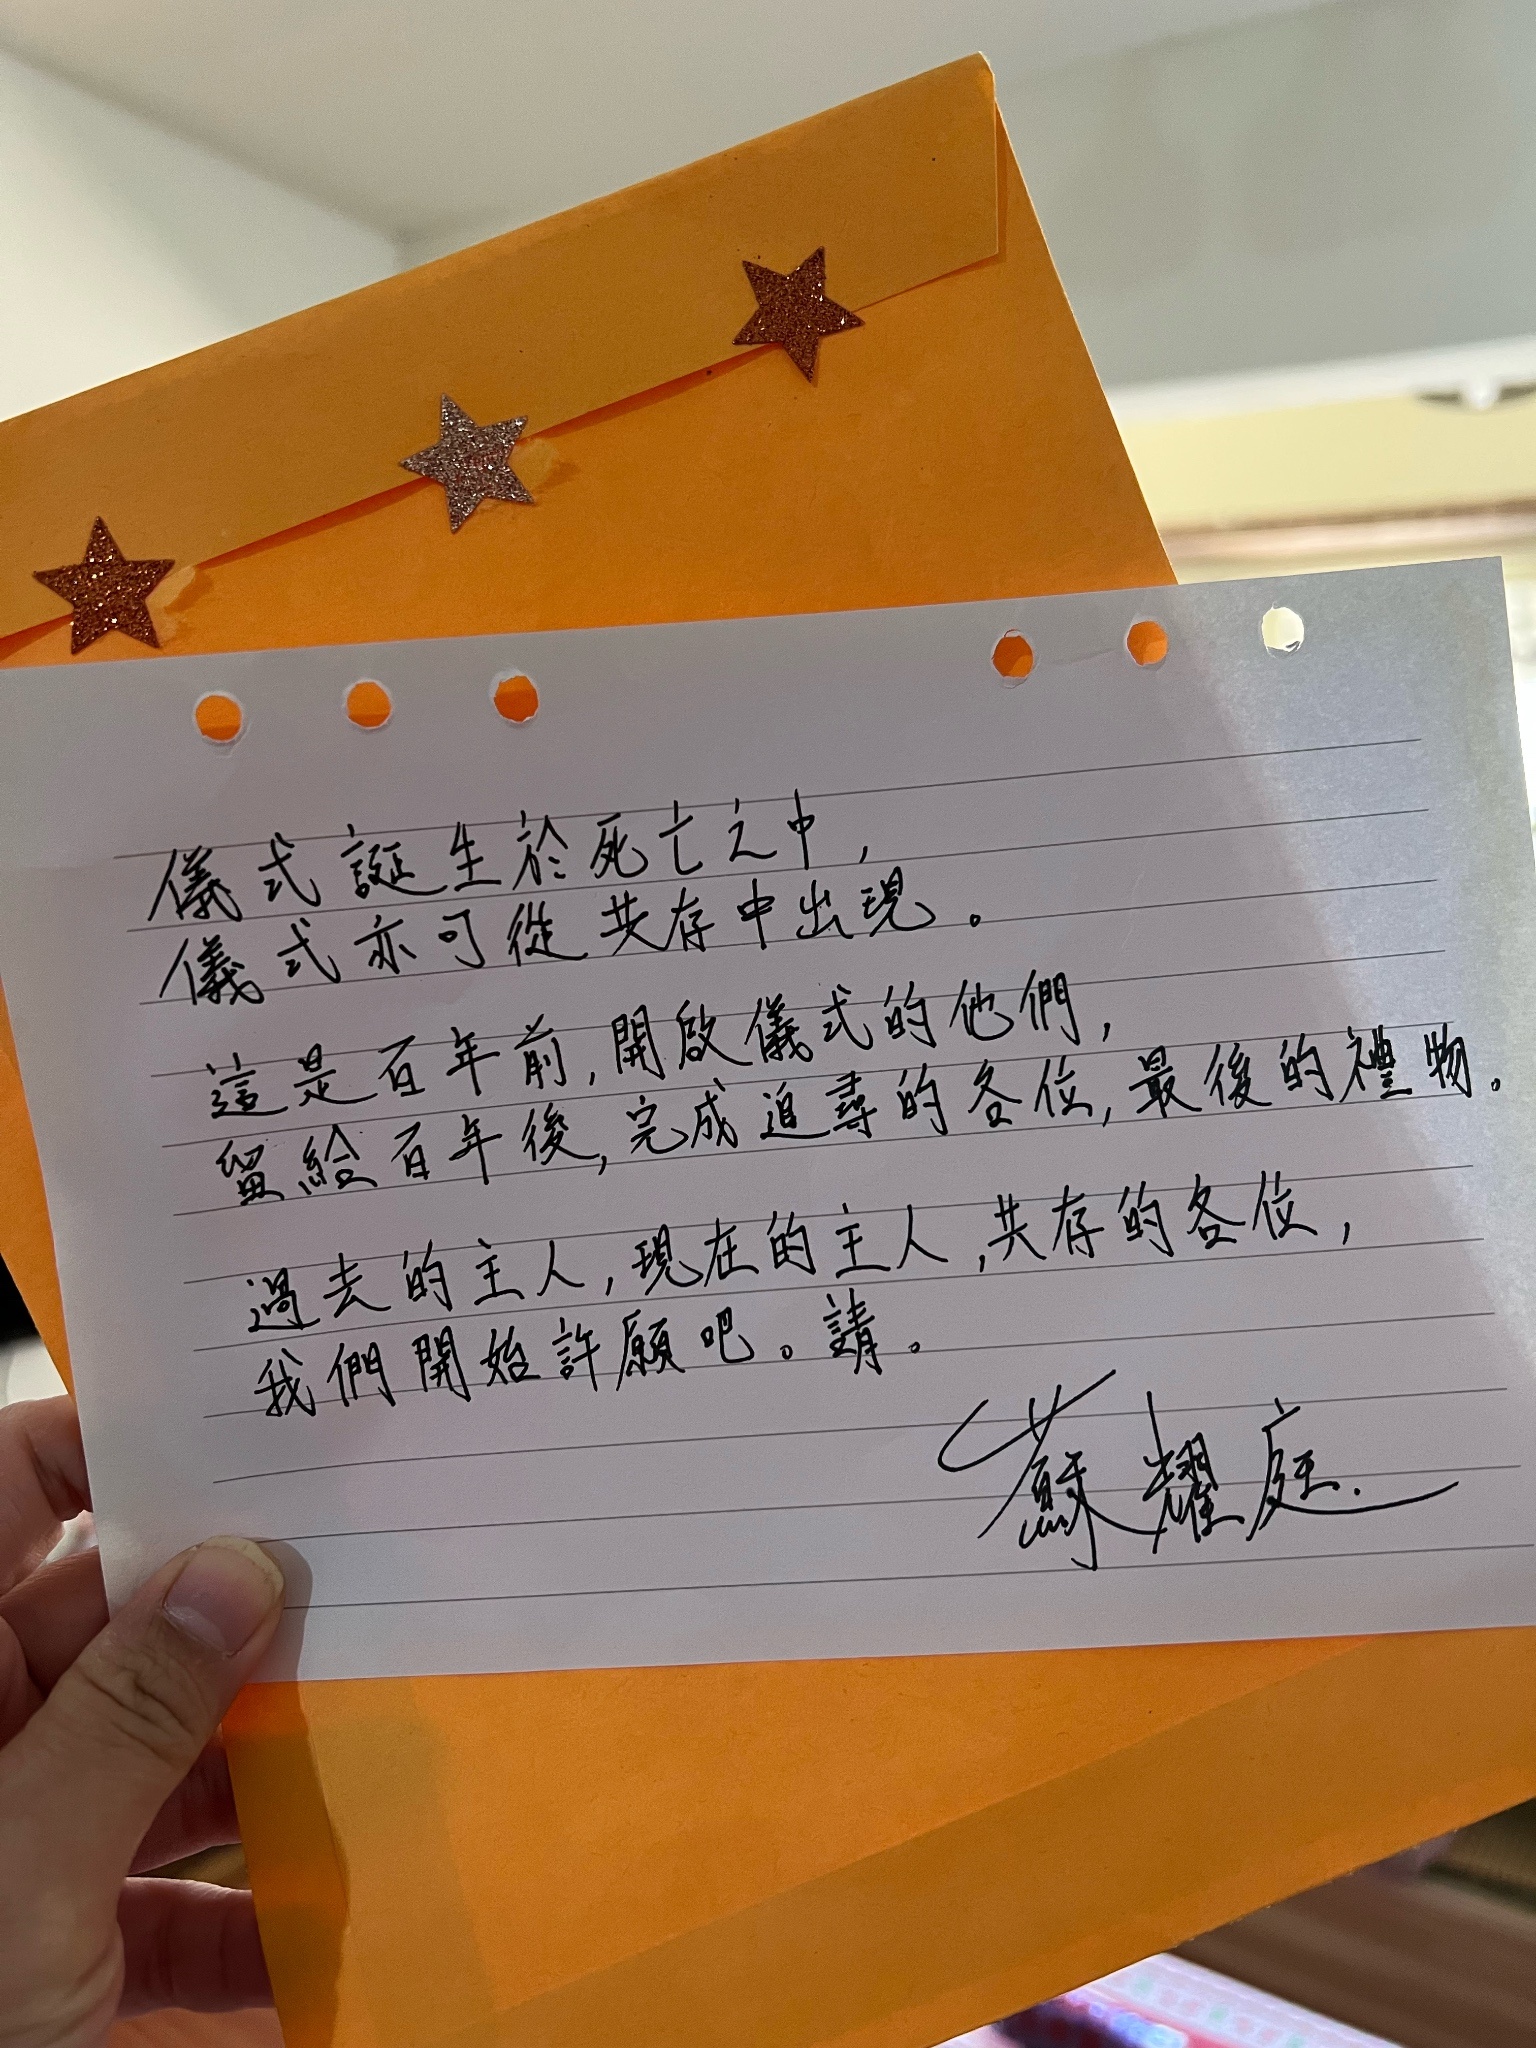 儀式誕生於死亡之中，
儀式亦可從共存中出現。
這是百年前，開啟儀式的他們，
留給百年後，完成追尋的各位，最後的禮物。
過去的主人，現在的主人，共存的各位，
我們開始許願吧。請。
蘇耀庭.